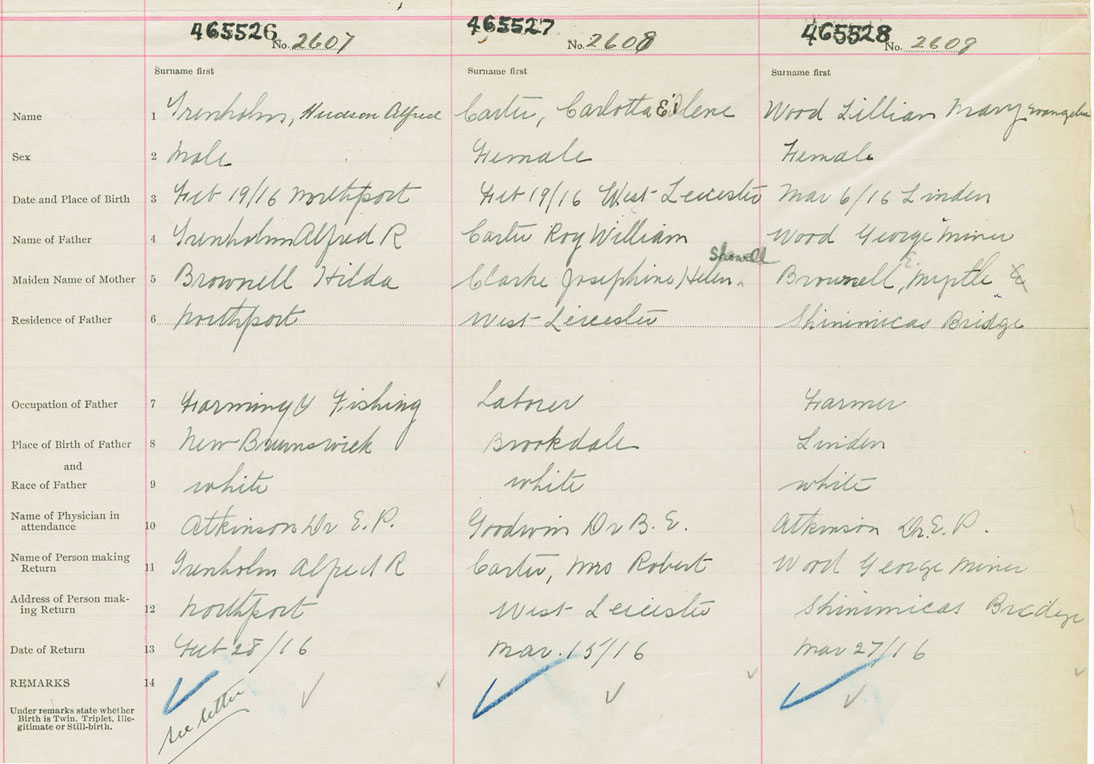 465526 No. 2607 465527 No. 2608 465528 No. 2609
Surname first Surname first Surname first
Name 1 Trenholm, Hudson Alfred Carter, Carlotta Eilene Wood Lillian Mary Evangeline
Sex 2 Male Female Female
Date and Place of Birth 3 Feb 19/16 Northport Feb 19/16 West Leicester Mar 6/16 Linden
Name of Father 4 Trenholm Alfred R Carter Roy William Wood George Miner
Showell
Maiden Name of Mother 5 Brownell Hilda Clarke Josephine Helen Brownell, Myrtle
Residence of Father 6 Northport West Leicester Shinimicas Bridge
Occupation of Father 7 Farming & Fishing Laborer Farmer
Place of Birth of Father 8 New Brunswick Brookdale Linden
and
Race of Father 9 white white white
Name of Physician in
attendance 10 Atkinson Dr E. P. Goodwin Dr B. E. Atkinson Dr. E. P.
Name of Person making
Return 11 Trenholm Alfred R Carter, Mrs Robert Wood George Miner
Address of Person mak-
ing Return 12 Northport West Leicester Shinimicas Bridge
Date of Return 13 Feb 28/16 Mar. 15/16 Mar 27/16
REMARKS 14
see letter
Under remarks state whether
Birth is Twin, Triplet, Ille-
gitimate or Still-birth.